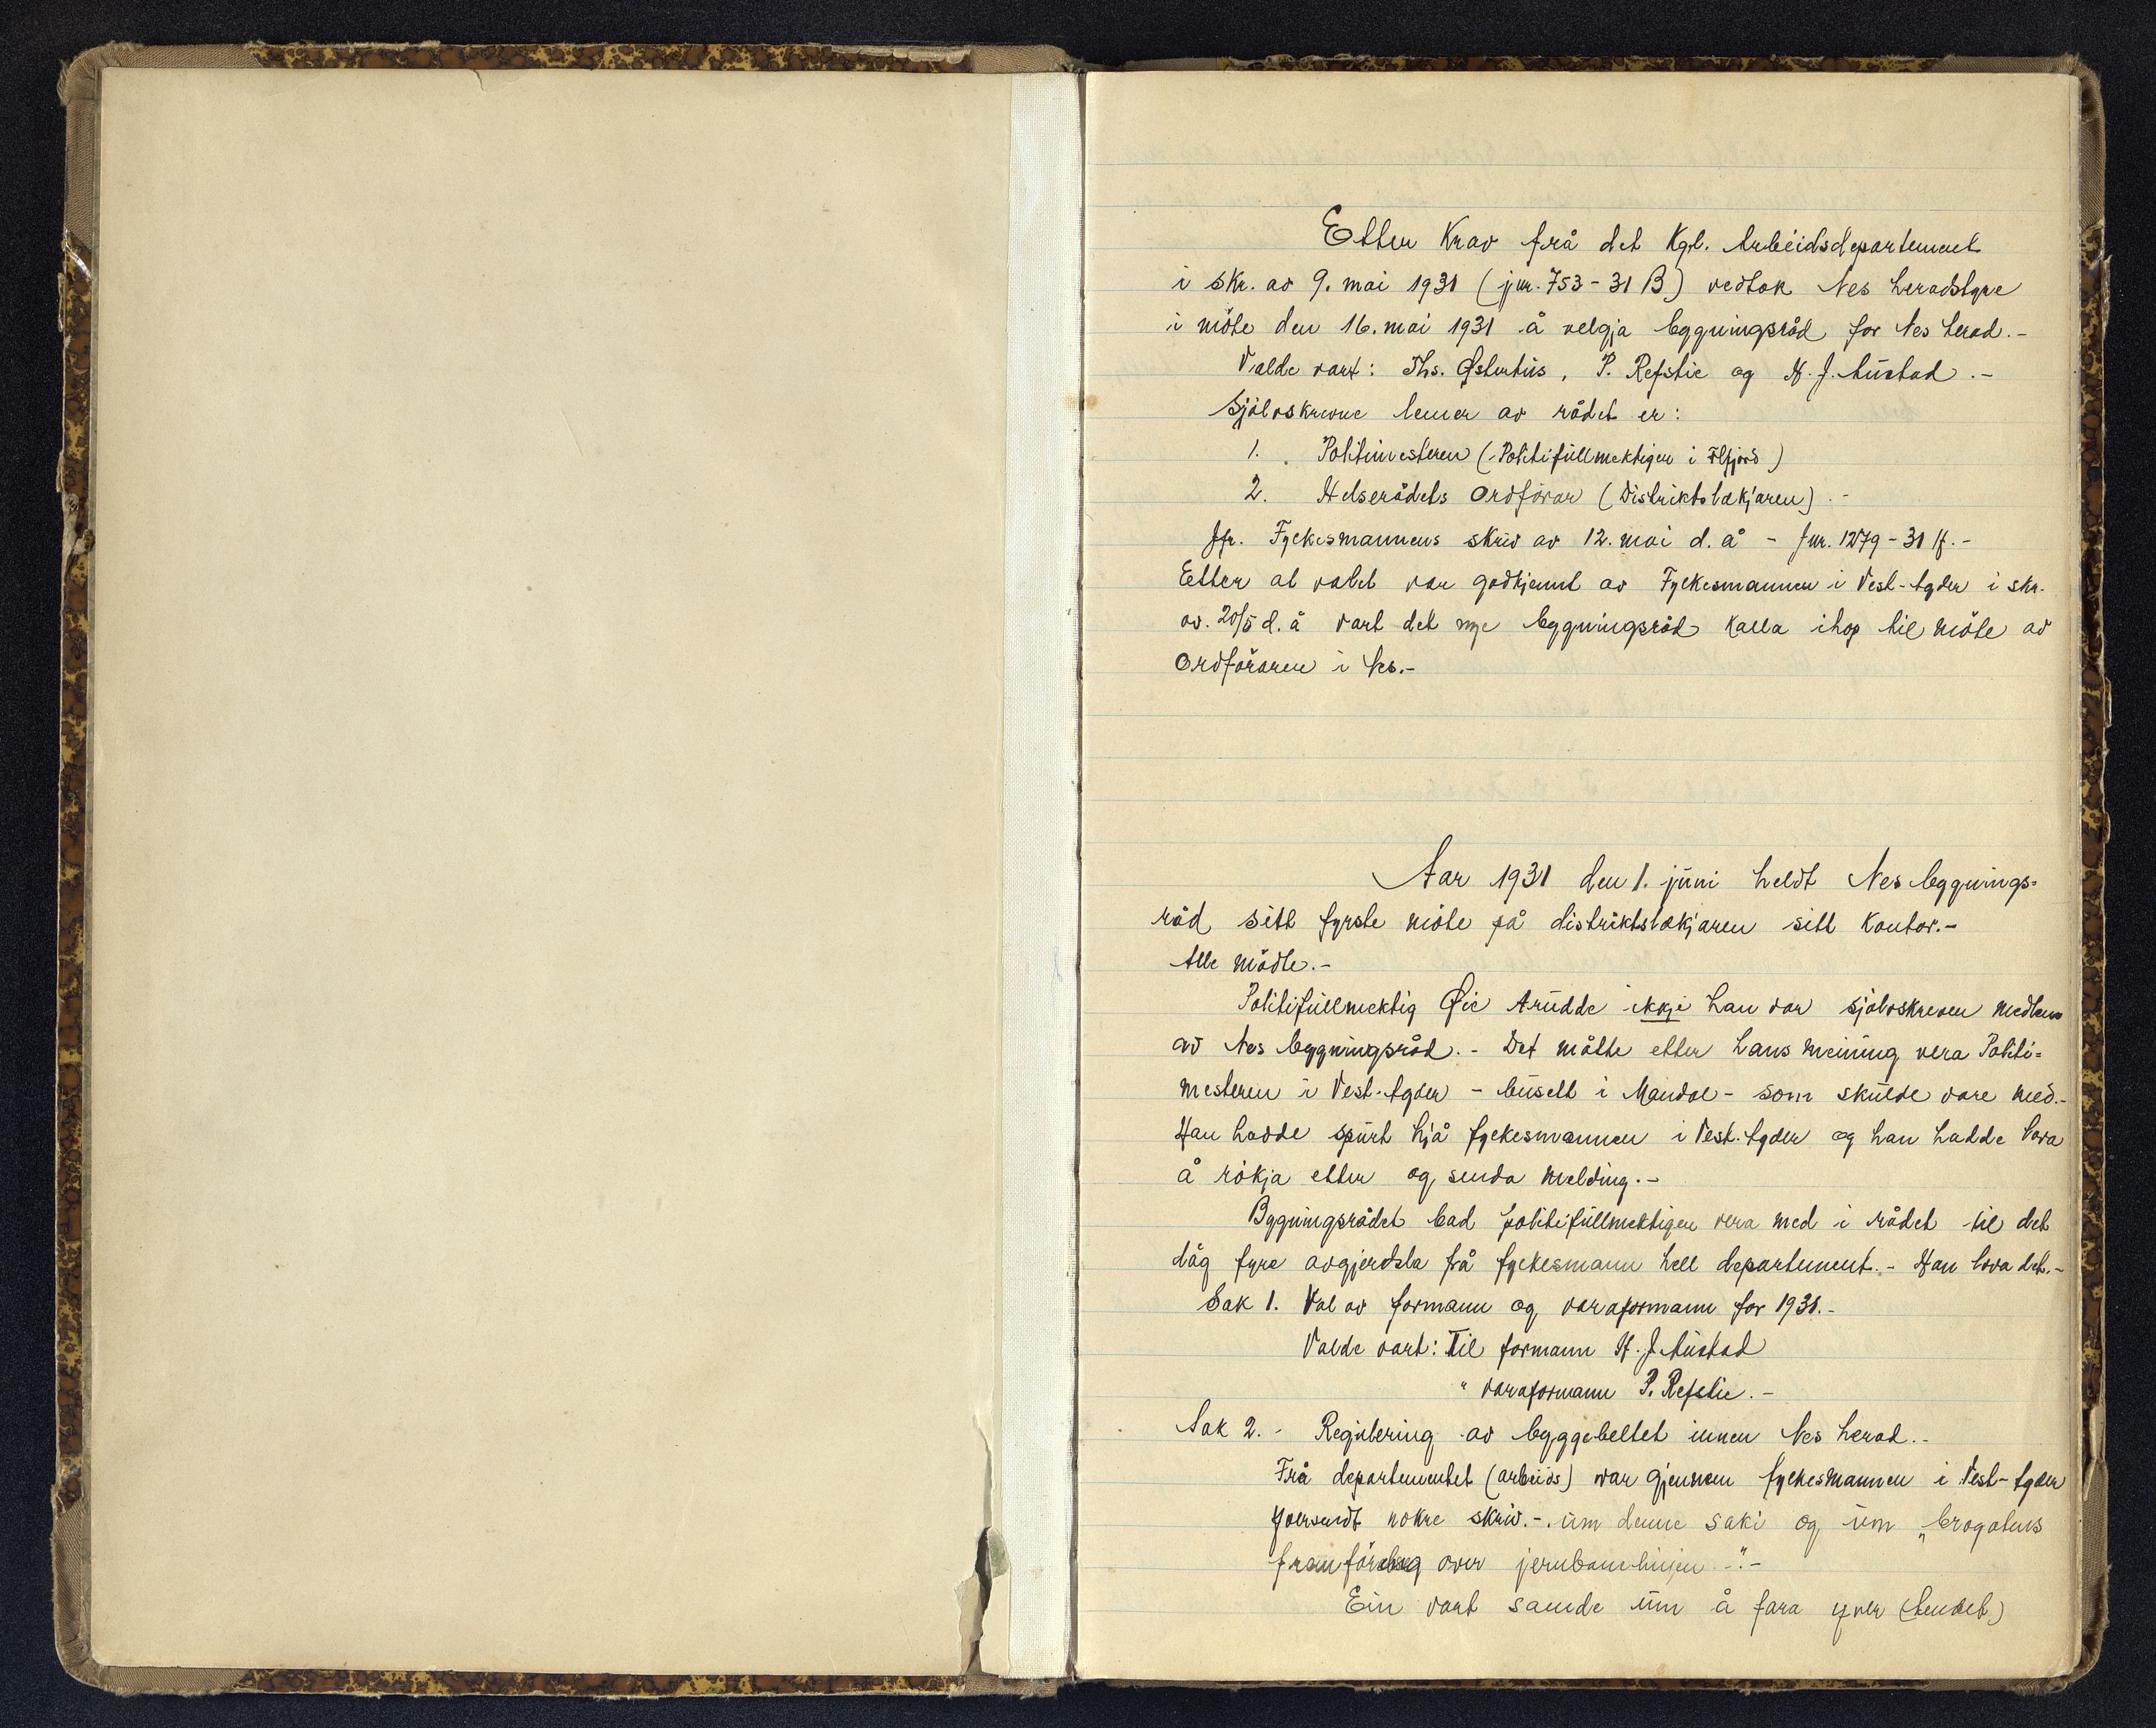 Etter Krav frå det Kgl. Arbeidsdepartement
i skr. av 9. mai 1931 (jnr. 753-31 B) vedtok Nes heradstyre
i møte den 16. mai 1931 å velgja bygningsråd for Nes herad.-
Valde vart: Ths. Østerhus, P. Refstie og H. J. Austad.-
Sjølvskrevne lemer av rådet er:
1. Politimesteren (Politifullmektigen i Flfjord)
2. Helserådets Ordførar (Distriktslækjaren).-
Jfr. Fylkesmannens skriv av 12. mai d. å - Jnr. 1279-31 H.-
Etter at valet var godkjent av Fylkesmannen i Vest-Agder i skr.
av. 20/5 d. å vart det nye bygningsråd kalla ihop til møte av
Ordføraren i Nes.-
Aar 1931 den 1. juni heldt Nes bygnings-
råd sitt fyrste møte på distriktslækjaren sitt Kontor.-
Alle møtte.-
Politifullmektig Øie trudde ikkje han var sjølvskreven medlem
av Nes bygningsråd.- Det måtte etter hans meining vera Politi-
mesteren i Vest-Agder - busett i Mandal - som skulde vare med.-
Han hadde spurt hjå fylkesmannen i Vest-Agder og han hadde lova
å røkja etter og senda melding.-
Bygningsrådet bad politifullmektigen vera med i rådet til det
låg fyre avgjerdsla frå fylkesmann hell departement.- Han lova det.-
Sak 1. Val av formann og varaformann for 1931.-
Valde vart: Til formann H. J. Austad
" varaformann P. Refstie.-
Sak 2.- Regulering av byggebeltet innen Nes herad.-
Frå departementet (arbeids) var gjennem fylkesmannen i Vest-Agder
yversendt nokre skriv.-. um denne saki og um „brogatens
framføring over jernbanelinjen -".-
Ein vart samde um å fara yver (tendet)